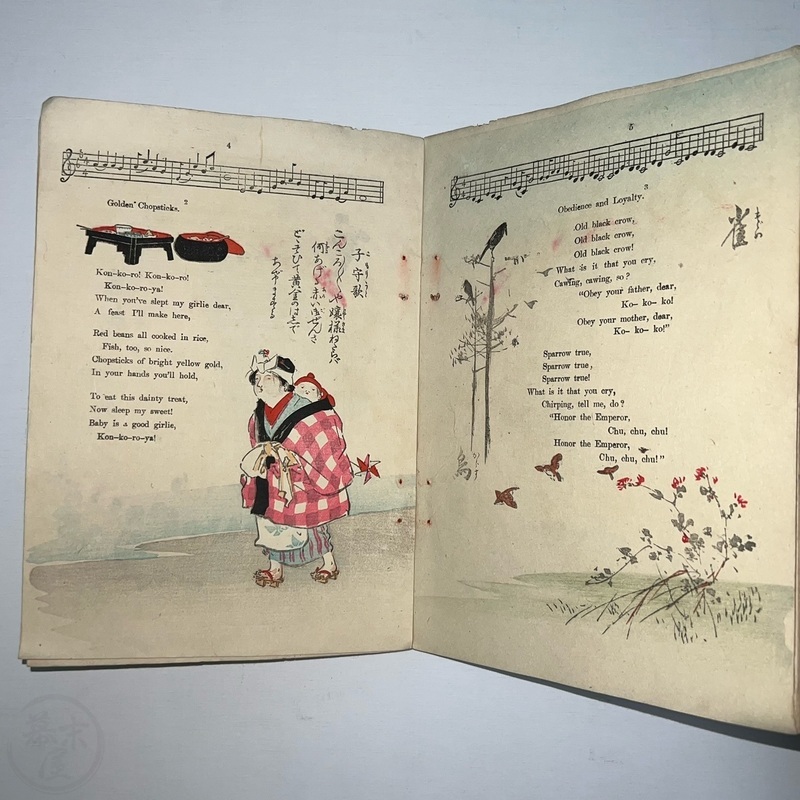 4
Golden Chopsticks. 2
Kon-ko-ro! Kon-ko-ro!
Kon-ko-ro-ya!
When you've slept my girlie dear,
A feast I'll make here,
Red beans all cooked in rice,
Fish, too, so nice.
Chopsticks of bright yellow gold,
In your hands you'll hold,
To eat this dainty treat,
Now sleep my sweet!
Baby is a good girlie,
Kon-ko-ro-ya!
子守歌
5
Obedience and Loyalty. 3
Old black crow,
Old black crow,
Old black crow!
What is it that you cry,
Cawing, cawing, so?
"Obey your father, dear,
Ko- ko- ko!
Obey your mother, dear,
Ko- ko- ko!"
Sparrow true,
Sparrow true,
Sparrow true!
What is it that you cry,
Chirping, tell me, do?
"Honor the Emperor,
Chu, chu, chu!
Honor the Emperor,
Chu, chu, chu!"
雀
烏
からす